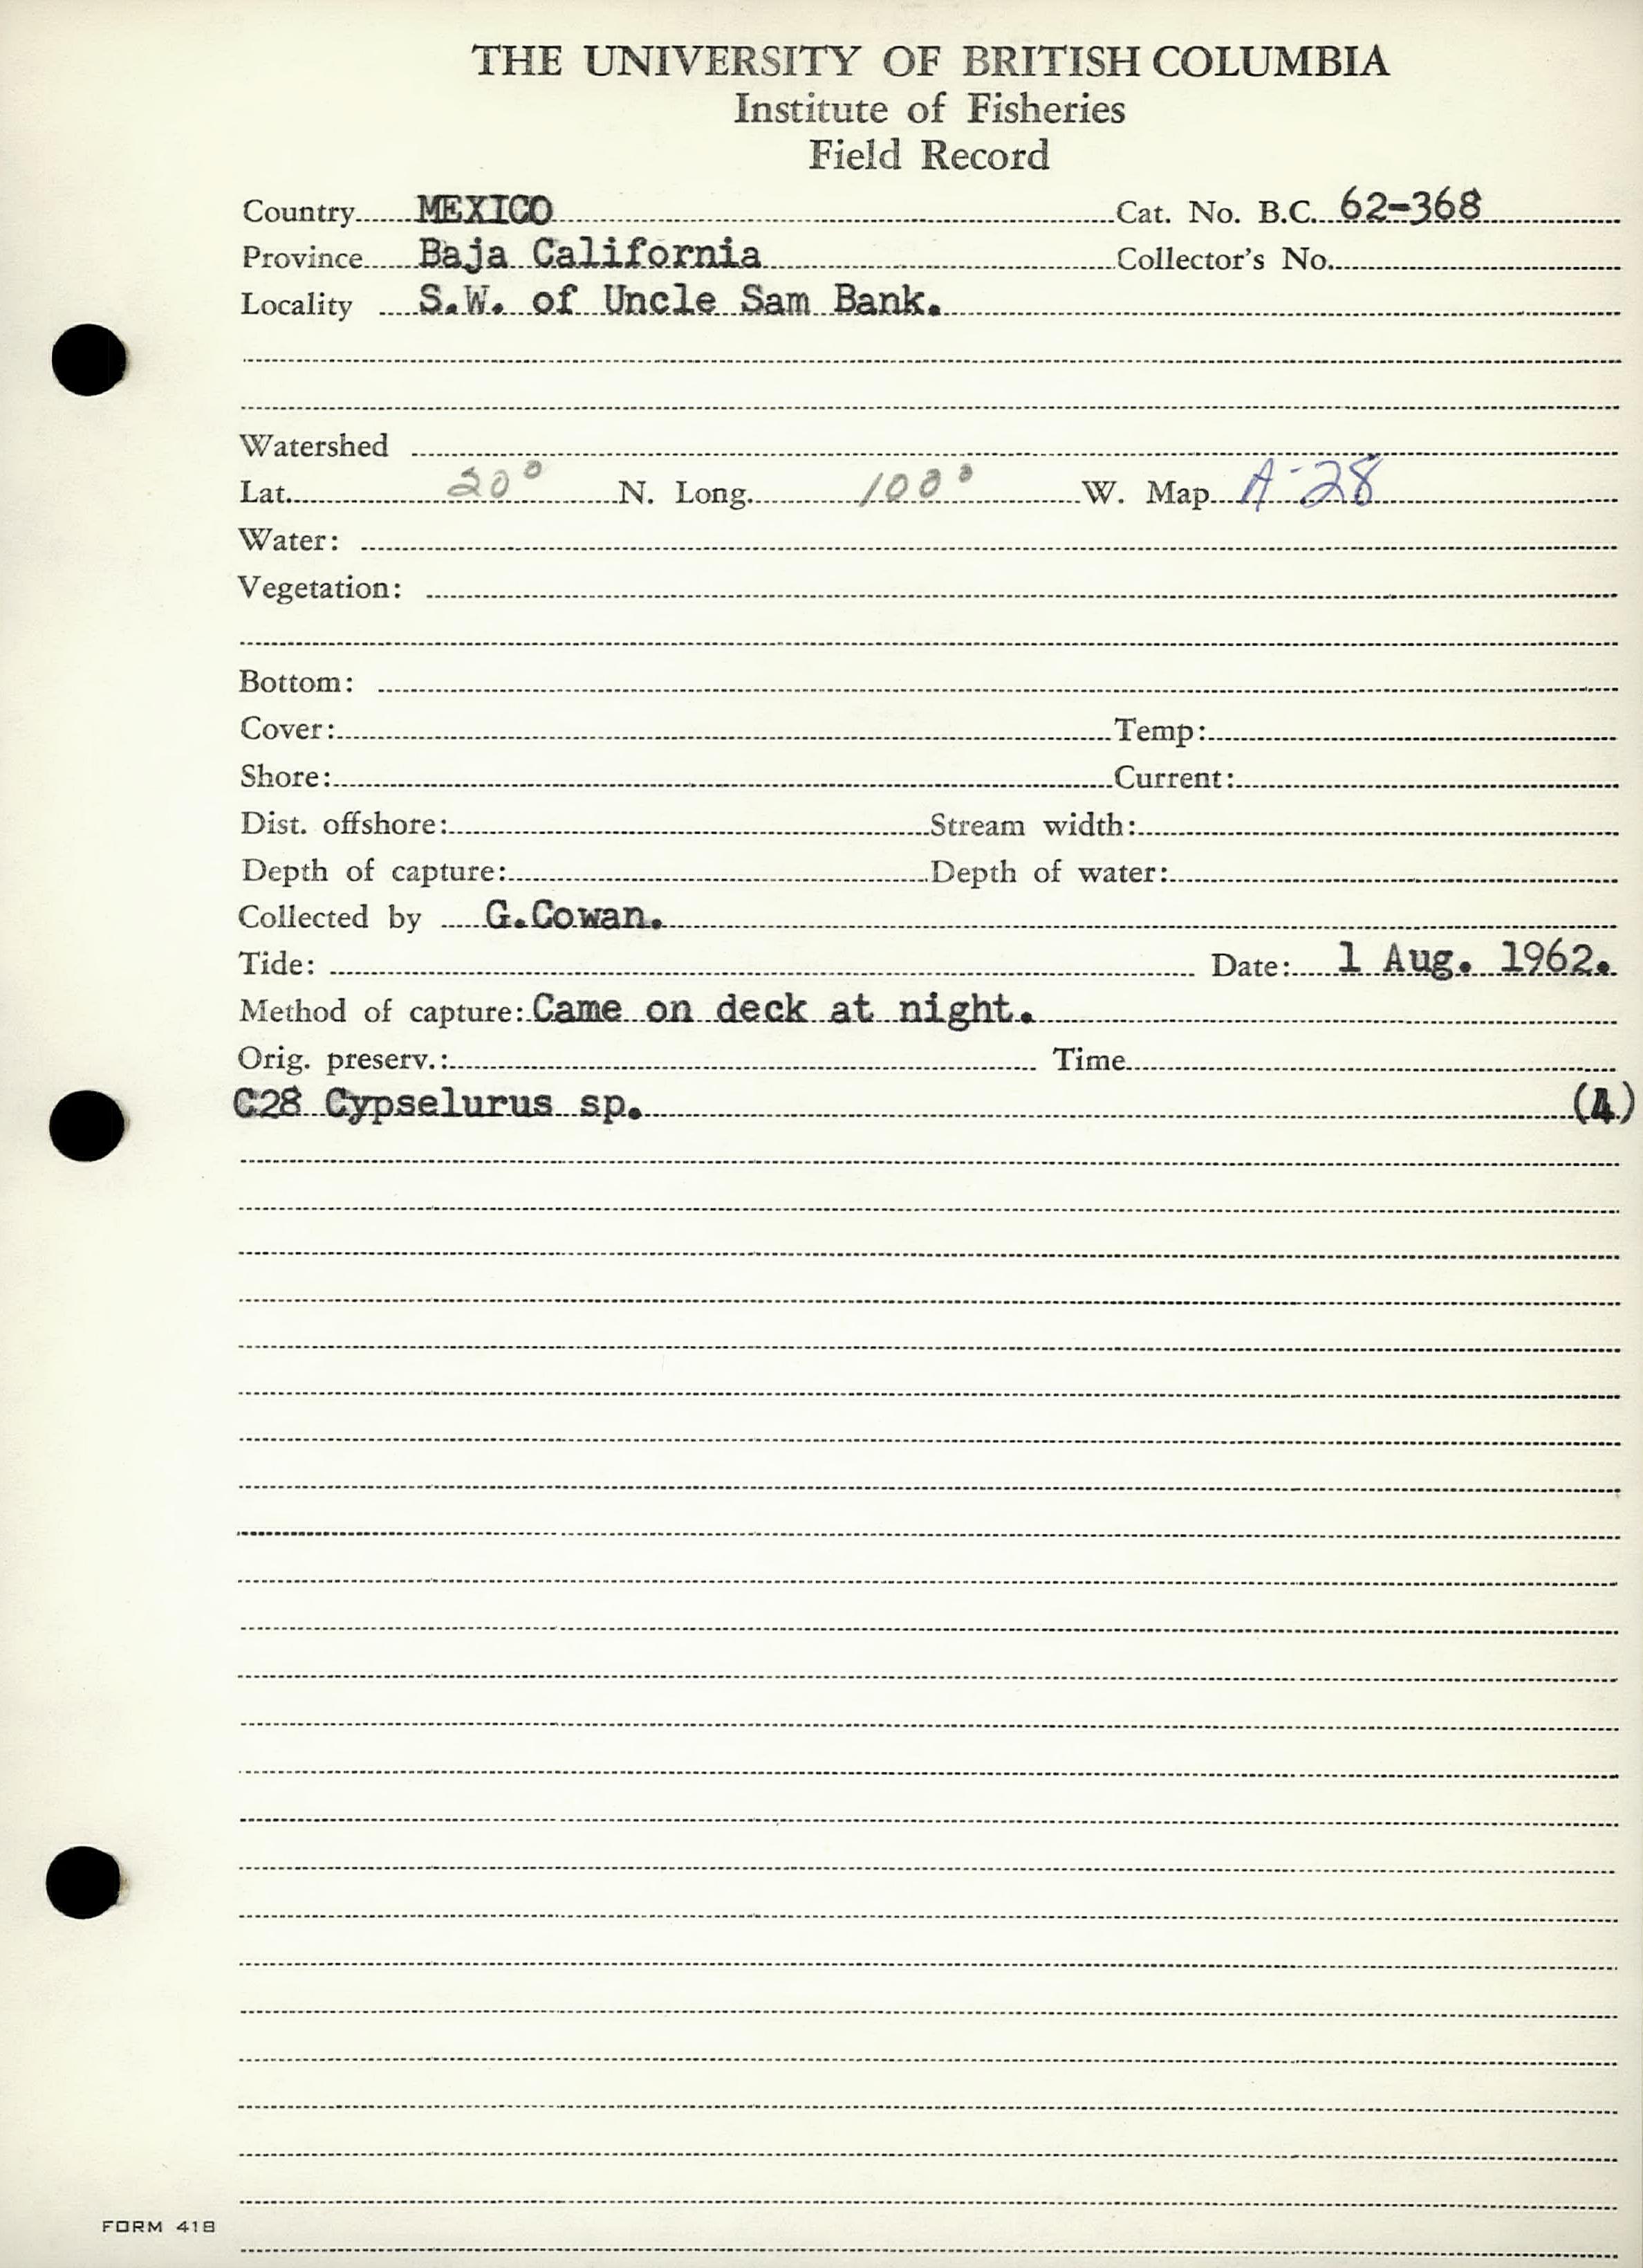 THE UNIVERSITY OF BRITISH COLUMBIA
Institute of Fisheries
Field Record
Country MEXICO Cat. No. B.C. 62-368
Province Baja California Collector's No.
Locality S.W. of Uncle Sam Bank.
Watershed
Lat. 20° N. Long. 100° W. Map A-28
Water:
Vegetation:
Bottom:
Cover: Temp:
Shore: Current:
Dist. offshore: Stream width:
Depth of capture: Depth of water:
Collected by G.Cowan.
Tide: Date: 1 Aug. 1962.
Method of capture: Came on deck at night.
Orig. preserv.: Time
C28 Cypselurus sp. (4)
FORM 418